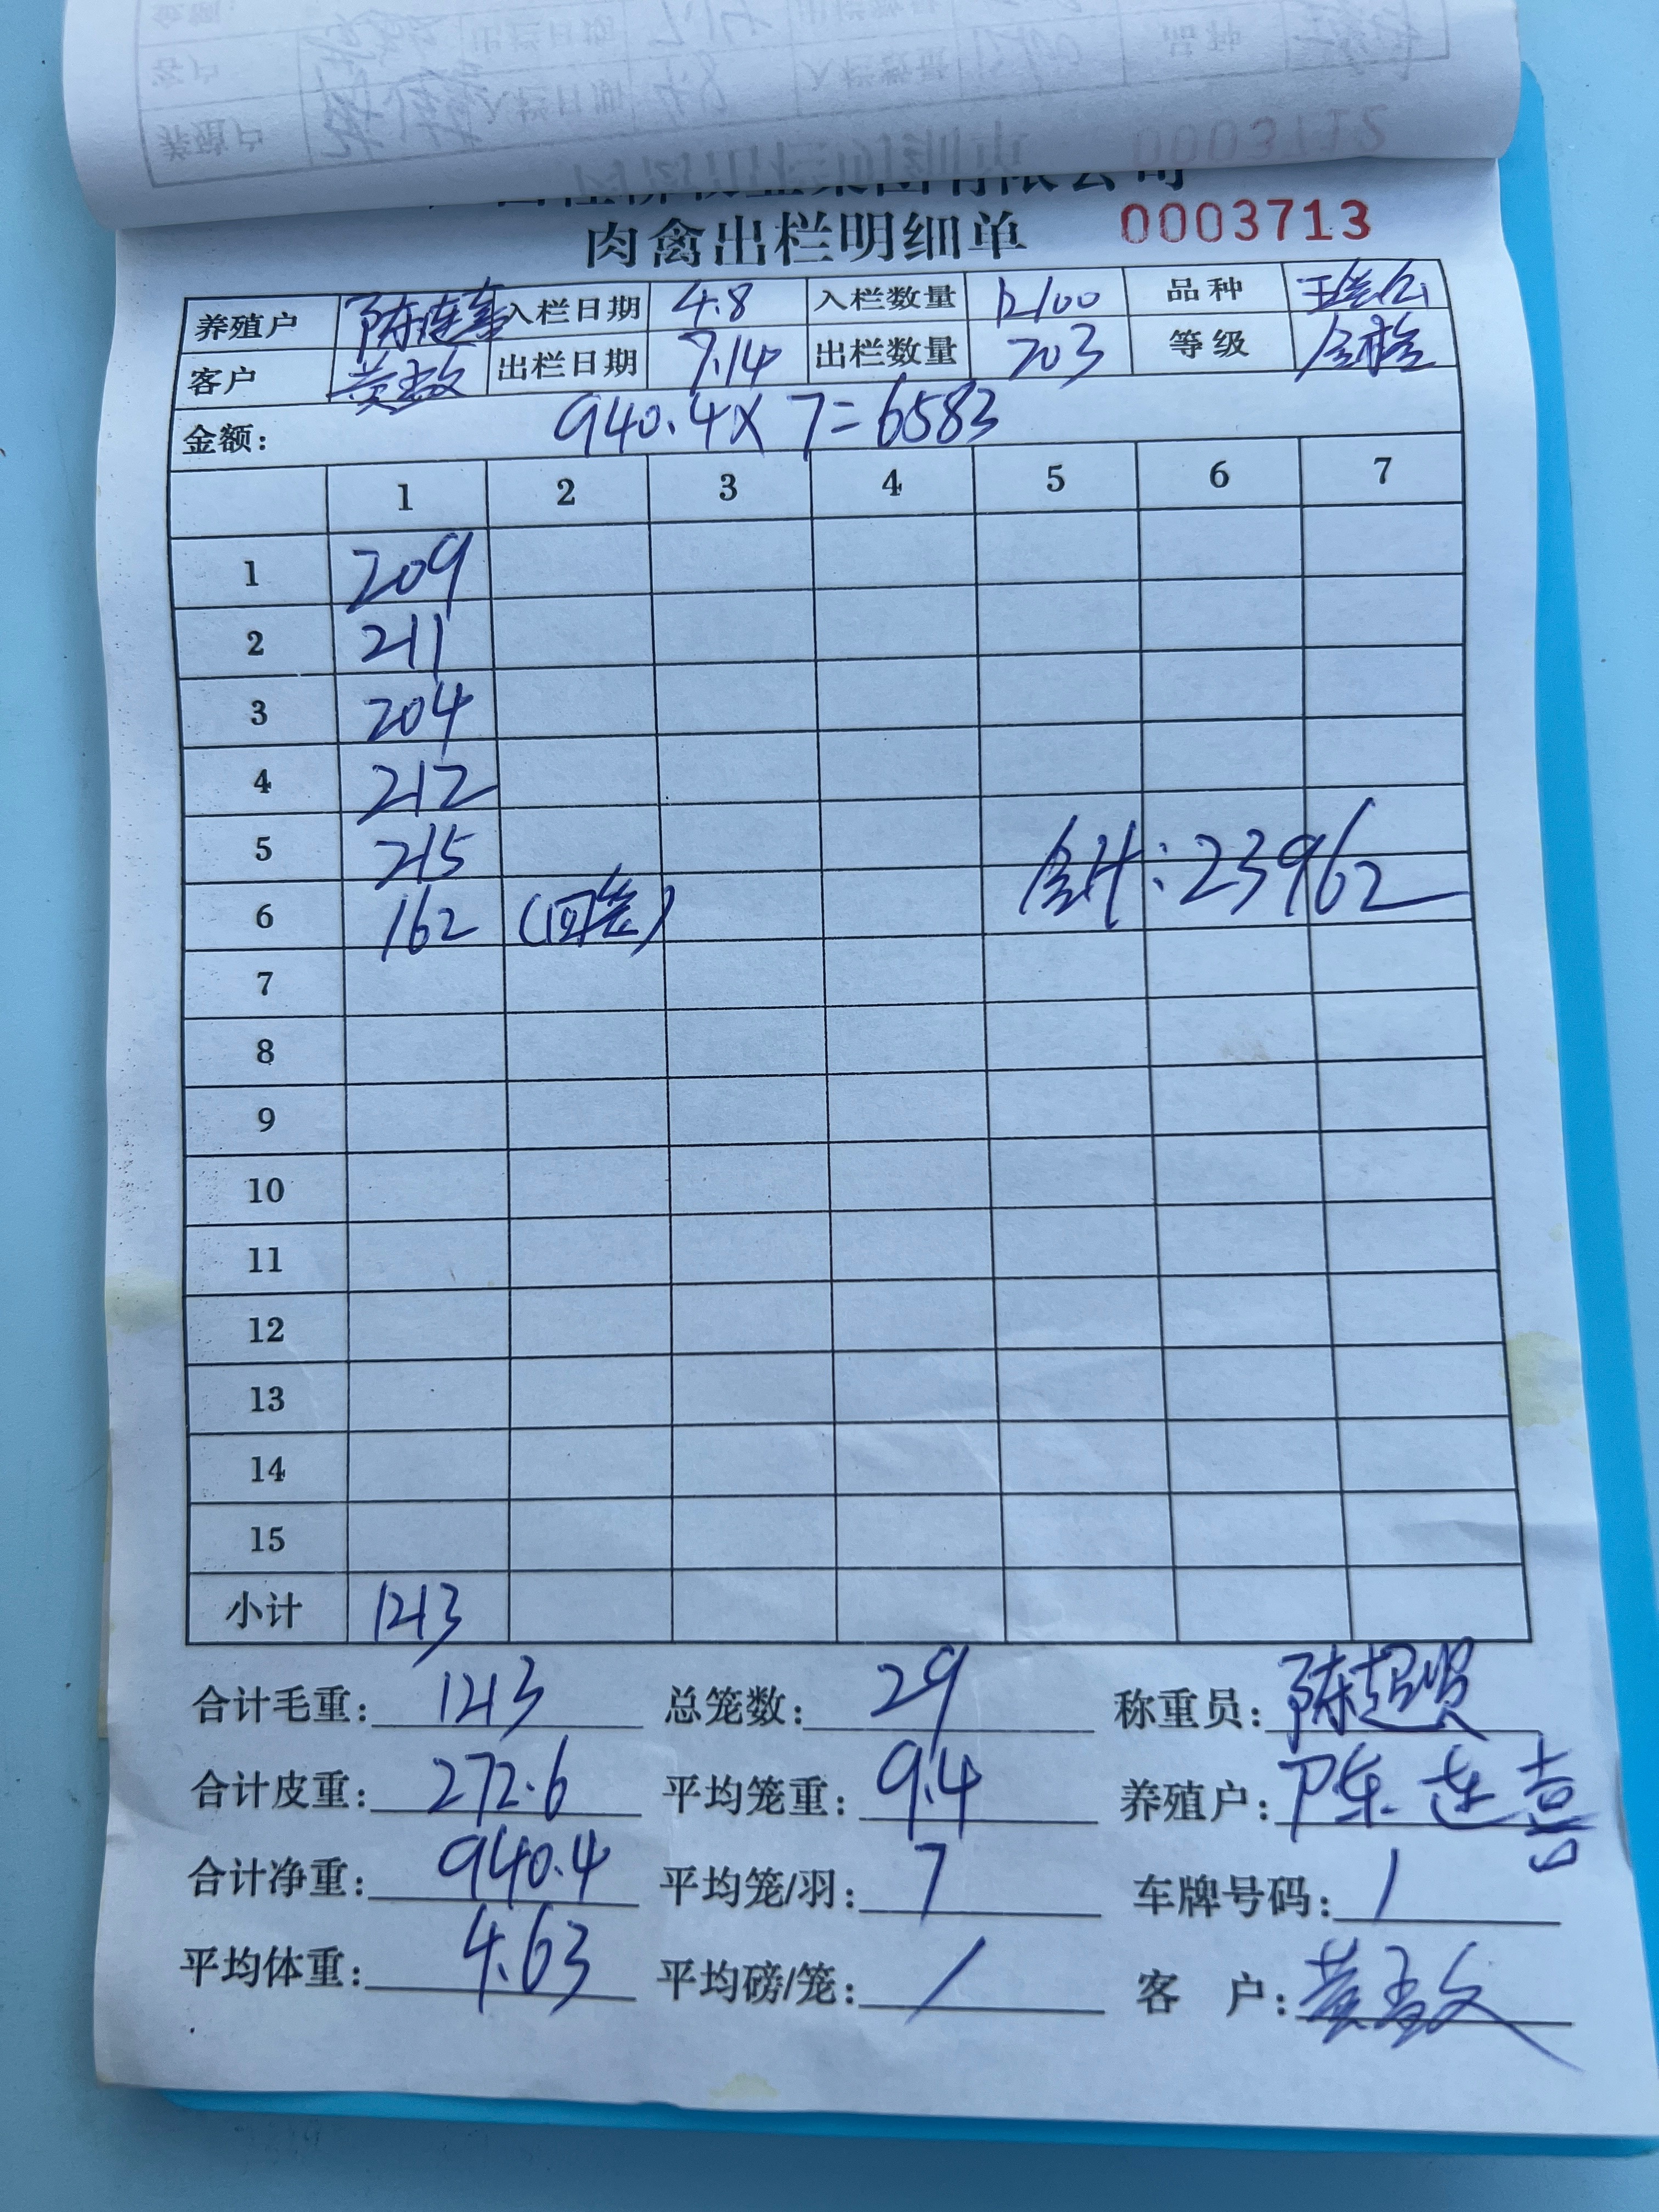 集团有限公司
肉禽出栏明细单 0003713
养殖户 陈连喜 入栏日期 4.8 入栏数量 12100 品种
客户 黄 出栏日期 7.14 出栏数量 203 等级 合格
金额: 940.4×7=6583
1 2 3 4 5 6 7
1 209
2 211
3 204
4 212
5 215 合计:23962
6 162 (回笼)
7
8
9
10
11
12
13
14
15
小计 1213
合计毛重: 1213 总笼数: 29 称重员: 陈超贤
合计皮重: 272.6 平均笼重: 9.4 养殖户: 陈连喜
合计净重: 940.4 平均笼/羽: 7 车牌号码: /
平均体重: 4.63 平均磅/笼: / 客 户: 黄